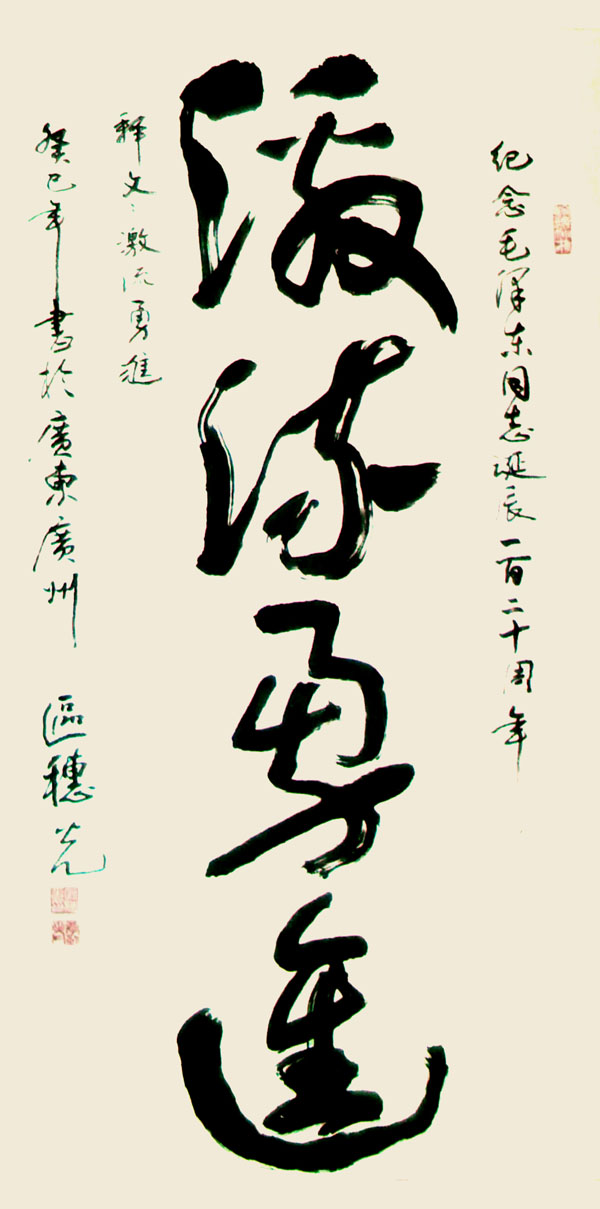 纪念毛泽东同志诞辰一百二十周年
激流勇進
释文：激流勇進
癸巳年書於廣東廣州 區穗光